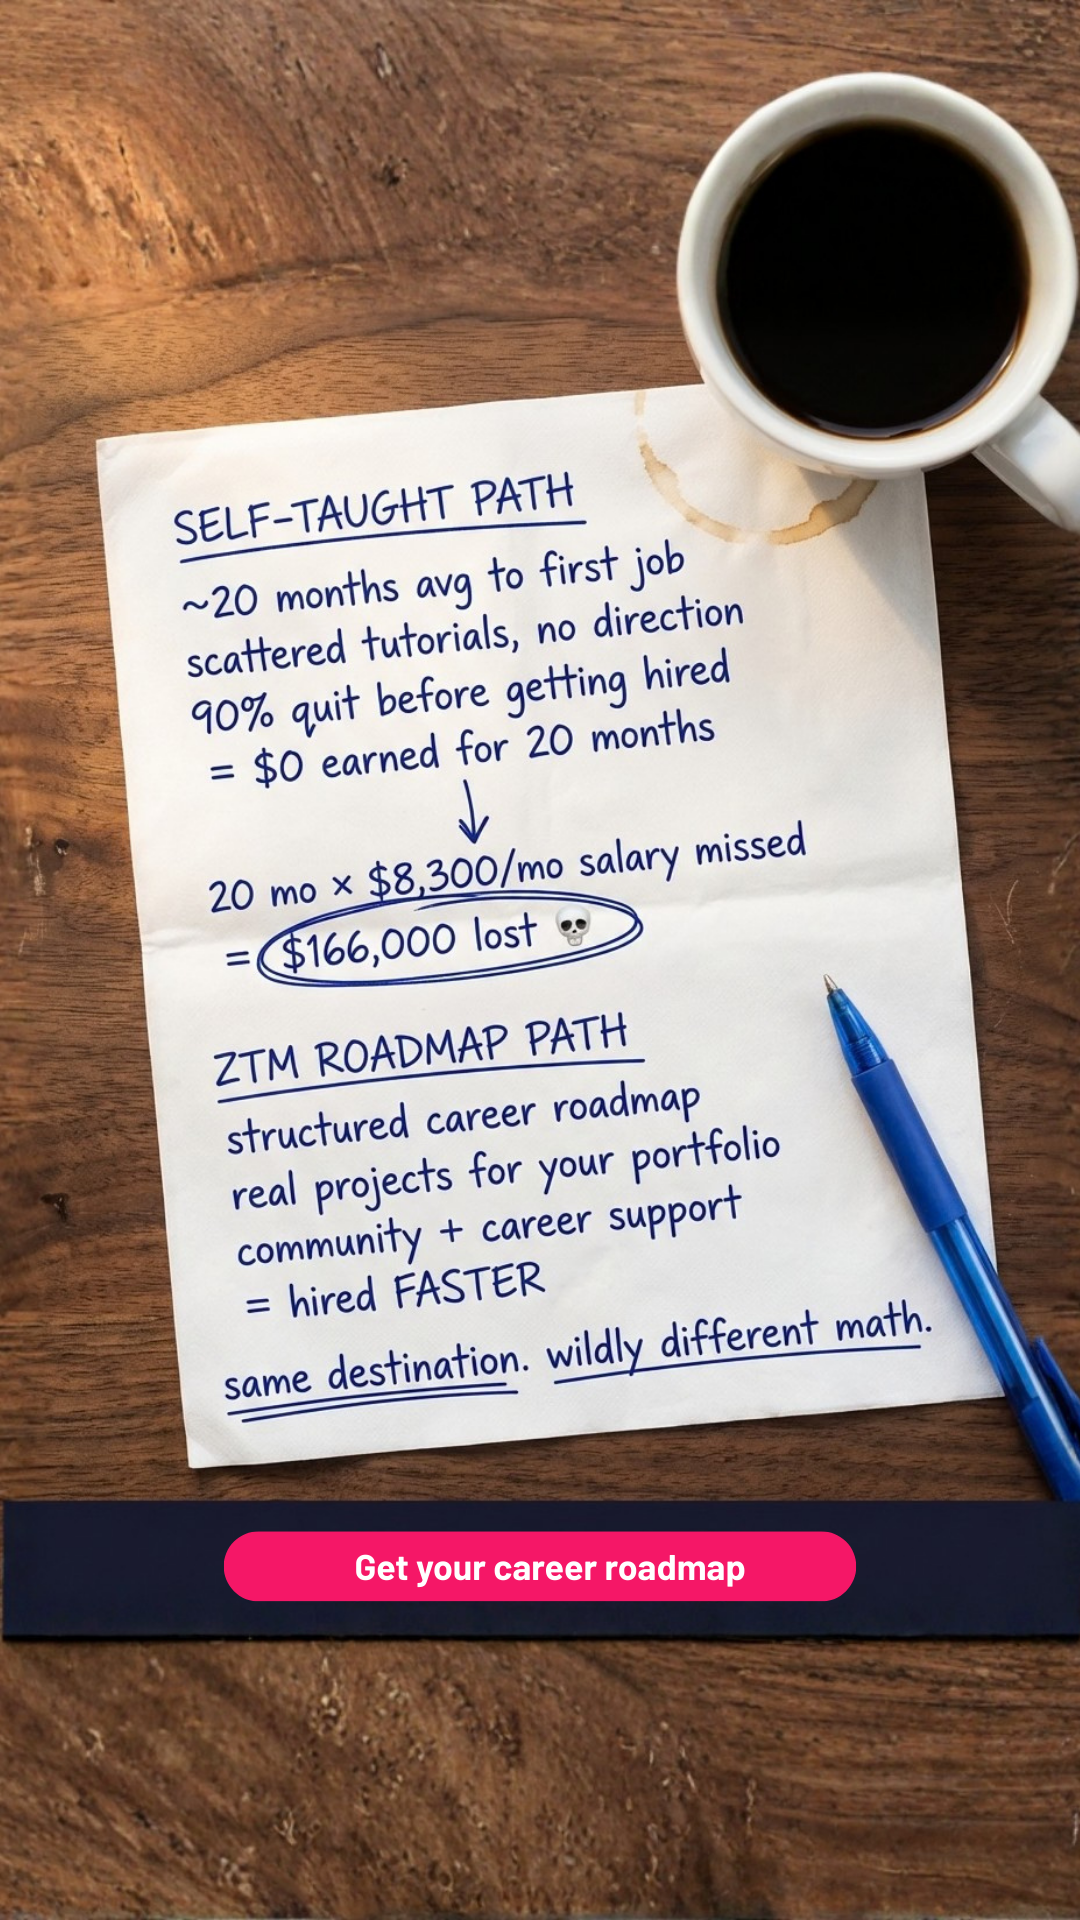 SELF-TAUGHT PATH
~20 months avg to first job
scattered tutorials, no direction
90% quit before getting hired
= $0 earned for 20 months
20 mo × $8,300/mo salary missed
= $166,000 lost 💀
ZTM ROADMAP PATH
structured career roadmap
real projects for your portfolio
community + career support
= hired FASTER
same destination. wildly different math.
Get your career roadmap